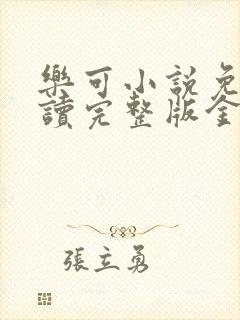 樂可小說免
讀完整版全
張立勇